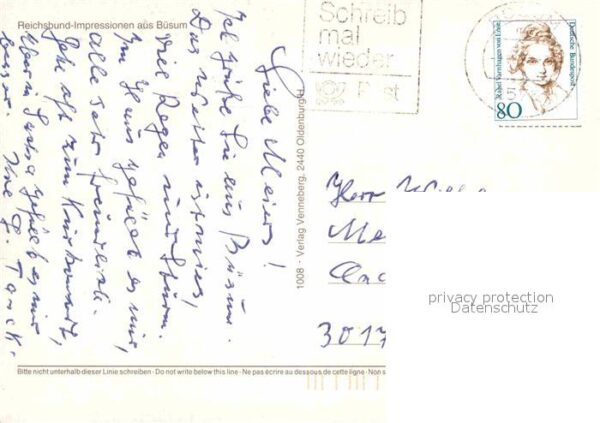 Reichsbund-Impressionen aus Büsum
Liebe Meiers!
Ich grüße Sie aus Büsum.
Das Wetter ist mies,
viel Regen und Sturm.
Im Haus gefällt es mir,
alle sehr freundlich.
Gehe oft zum Kurkonzert,
Aber in gefällt es mir
besser. Ihre
1008 - Verlag Verneberg, 2440 Oldenburg/H
Schreib
mal
wieder
Post
Deutsche Bundespost
Rahel Varnhagen von Ense
80
Herr
Me
3017
privacy protection
Datenschutz
Bitte nicht unterhalb dieser Linie schreiben · Do not write below this line · Ne pas écrire au dessous de cette ligne · Non s